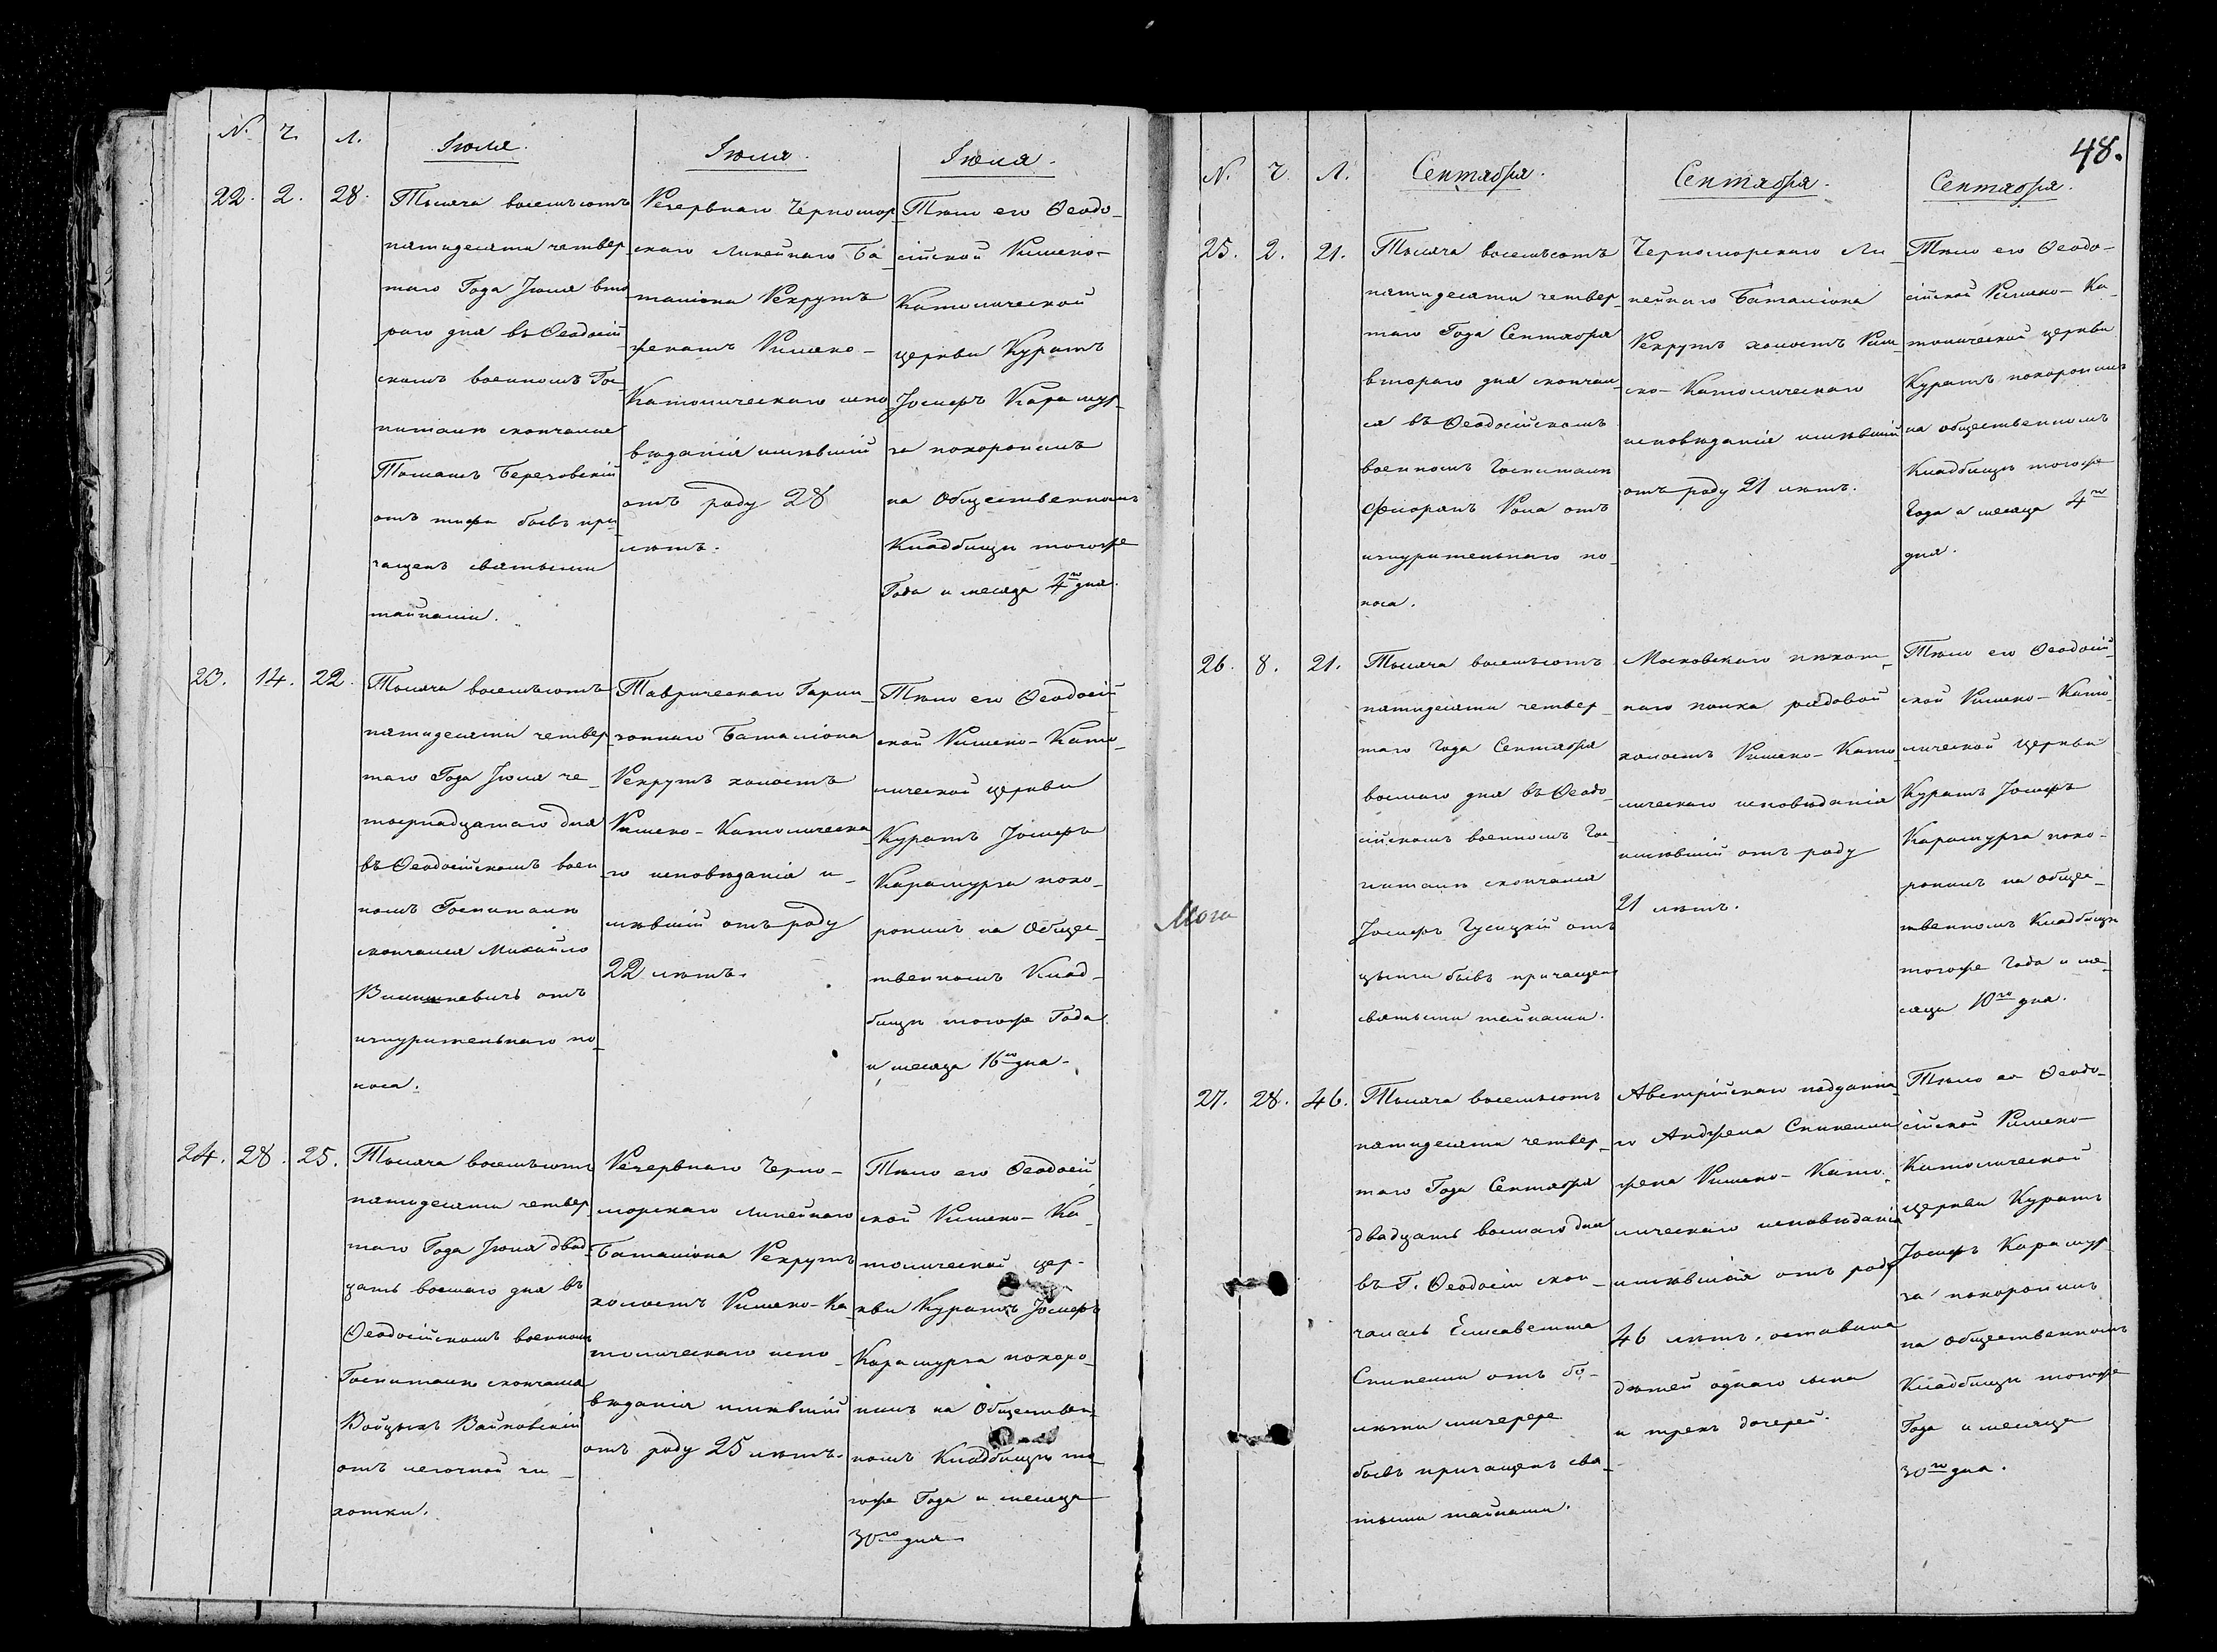 N. Ч. Л. Іюля. Іюля. Іюля.
22. 2. 28.
Тысяча восемьсотъ
пятидесяти четвер
таго Года Іюля вто
раго дня въ Ѳеодосій
скомъ военномъ Гос
питалѣ скончался
Томашъ Березовскій
отъ тифа бывъ при
чащенъ святыми
тайнами.
Резервнаго Черномор
скаго Линейнаго Ба
таліона Рекрутъ
женатъ Римско-
Католическаго испо
вѣданія имѣвшій
отъ роду 28
лѣтъ.
Тѣло его Ѳеодо-
сійской Римско-
Католической
церкви Куратъ
Іосифъ Карамур-
за похоронилъ
на Общественномъ
Кладбищѣ тогоже
Года и месяца 4го дня.
23. 14. 22.
Тысяча восемьсотъ
пятидесяти четвер
таго Года Іюля че-
тырнадцатаго дня
въ Ѳеодосійскомъ воен
номъ Госпиталѣ
скончался Михайло
Вилишневичъ отъ
изнурительнаго по-
носа.
Таврическаго Гарни-
зоннаго Баталіона
Рекрутъ холостъ
Римско-Католическа-
го исповѣданія и-
мѣвшій отъ роду
22 лѣтъ.
Тѣло его Ѳеодосій-
ской Римско-Като-
лической церкви
Куратъ Іосифъ
Карамурза похо-
ронилъ на Общес-
твенномъ Клад-
бищѣ тогоже Года
и месяца 16го дня.
24. 28. 25.
Тысяча восемьсотъ
пятидесяти четвер
таго Года Іюля двад
цать восмаго дня въ
Ѳеодосійскомъ военномъ
Госпиталѣ скончался
Войцѣхъ Войковскій
отъ легочной ча-
хотки.
Резервнаго Черно-
морскаго Линейнаго
Баталіона Рекрутъ
холостъ Римско-Ка
толическаго испо-
вѣданія имѣвшій
отъ роду 25 лѣтъ.
Тѣло его Ѳеодосій
ской Римско-Ка-
толической цер-
кви Куратъ Іосифъ
Карамурза похоро-
нилъ на Обществен-
номъ Кладбищѣ то-
гоже Года и месяца
30го дня
48.
N. Ч. Л. Сентября. Сентября. Сентября.
25. 2. 21.
Тысяча восемьсотъ
пятидесяти четвер-
таго Года Сентября
втораго дня скончал-
ся въ Ѳеодосійскомъ
военномъ Госпиталѣ
Флоріанъ Рома отъ
изнурительнаго по-
носа.
Черноморскаго Ли-
нейнаго Баталіона
Рекрутъ холостъ Рим-
ско-Католическаго
исповѣданія имѣвшій
отъ роду 21 лѣтъ.
Тѣло его Ѳеодо-
сійской Римско-Ка-
толической церкви
Куратъ похоронилъ
на общественномъ
Кладбищѣ тогоже
Года и месяца 4го
дня.
26. 8. 21.
Тысяча восемьсотъ
пятидесяти четвер-
таго Года Сентября
восмаго дня въ Ѳеодо-
сійскомъ военномъ Гос-
питалѣ скончался
Іосифъ Гусицкій отъ
цынги бывъ причащенъ
святыми тайнами.
Московскаго пѣхот-
наго полка рядовой
холостъ Римско-Като-
лическаго исповѣданія
имѣвшій отъ роду
21 лѣтъ.
Тѣло его Ѳеодосій-
ской Римско-Като-
лической Церкви
Куратъ Іосифъ
Карамурза похо-
ронилъ на общес-
твенномъ Кладбищѣ
тогоже Года и ме-
сяца 10го дня.
27. 28. 46.
Тысяча восемьсотъ
пятидесяти четвер-
таго Года Сентября
двадцать восмаго дня
въ Г. Ѳеодосіи скон-
чалась Елисаветта
Спинелли отъ бо-
лѣзни мизерере
бывъ причащенъ свя-
тыми тайнами.
Австрійскаго подданна-
го Анджела Спинелли
жена Римско-Като-
лическаго исповѣданія
имѣвшая отъ роду
46 лѣтъ, оставила
дѣтей одного сына
и трехъ дочерей.
Тѣло ея Ѳеодо-
сійской Римско-
Католической
церкви Куратъ
Іосифъ Карамур-
за похоронилъ
на общественномъ
Кладбищѣ тогоже
Года и месяца
30го дня.